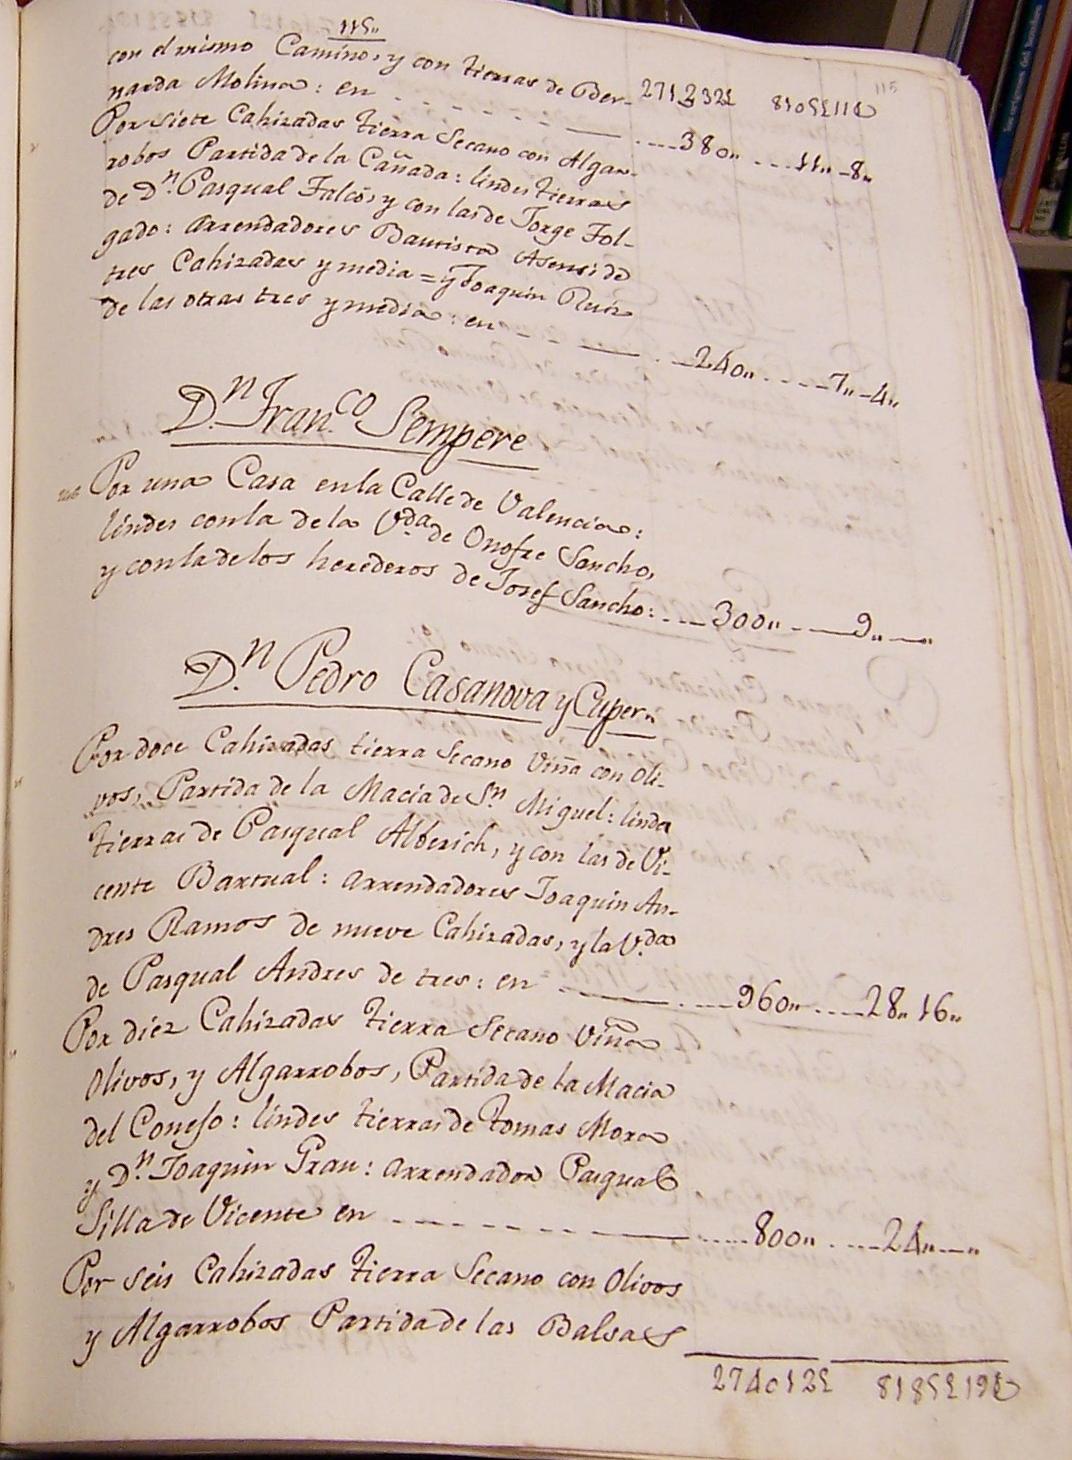 115„
con el mismo Camino, y con tierras de Ber- 271232£ 8105£11D
narda Molina: en 380„ 11„ 8„
Por siete Cahizadas tierra Secano con Algar-
robos Partida de la Cañada: lindes tierras
de Dn. Pasqual Falcó, y con las de Jorge Fol-
gado: arrendadores Bautista Asensi de
tres Cahizadas y media = y Joaquin Ruiz
de las otras tres y media: en 240„ 7„ 4„
Dn. Fran.co Sempere
Por una Casa en la Calle de Valencia:
lindes con la de la V.da de Onofre Sancho,
y con la de los herederos de Josef Sancho: 300„ 9„ „
Dn. Pedro Casanova y Cuper.
Por doce Cahizadas tierra Secano Viña con Oli-
vos, Partida de la Macia de Sn. Miguel: linda
tierras de Pasqual Alberich, y con las de Vi-
cente Bartual: arrendadores Joaquin An-
dres Ramos de nueve Cahizadas, y la V.da
de Pasqual Andres de tres: en 960„ 28„ 16„
Por diez Cahizadas tierra Secano Viña
Olivos, y Algarrobos, Partida de la Macia
del Conejo: lindes tierras de Tomas Mora
y Dn. Joaquin Grau: arrendador Pasqual
Silla de Vicente en 800„ 24„ „
Por seis Cahizadas tierra Secano con Olivos
y Algarrobos Partida de las Balsas
274012£ 8185£19